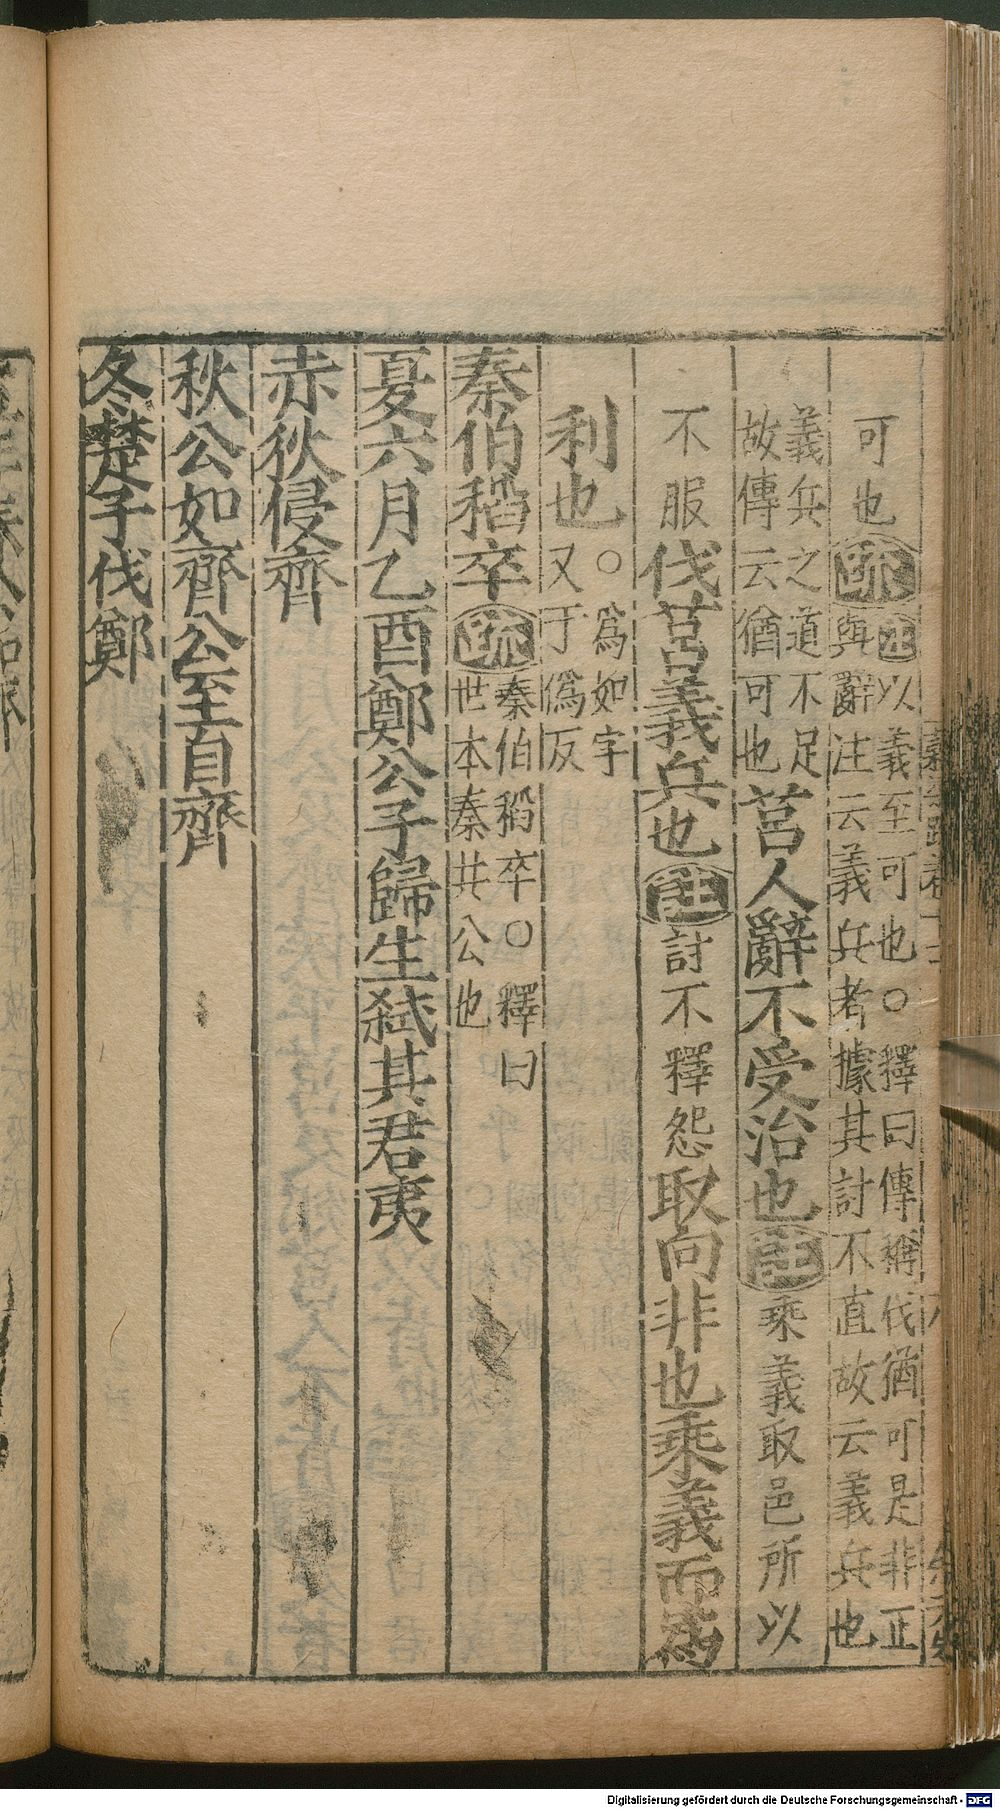 可也疏注以義至可也○釋曰傳稱伐猶可是非正
與辭注云義兵者據其討不直故云義兵也
義兵之道不足
故傳云猶可也莒人辭不受治也注乘義取邑所以
不服伐莒義兵也注討不釋怨取向非也乘義而爲
利也○爲如字
又于僞反
秦伯稻卒疏秦伯稻卒○釋曰
世本秦共公也
夏六月乙酉鄭公子歸生弑其君夷
赤狄侵齊
秋公如齊公至自齊
冬楚子伐鄭
Digitalisierung gefördert durch die Deutsche Forschungsgemeinschaft - DFG